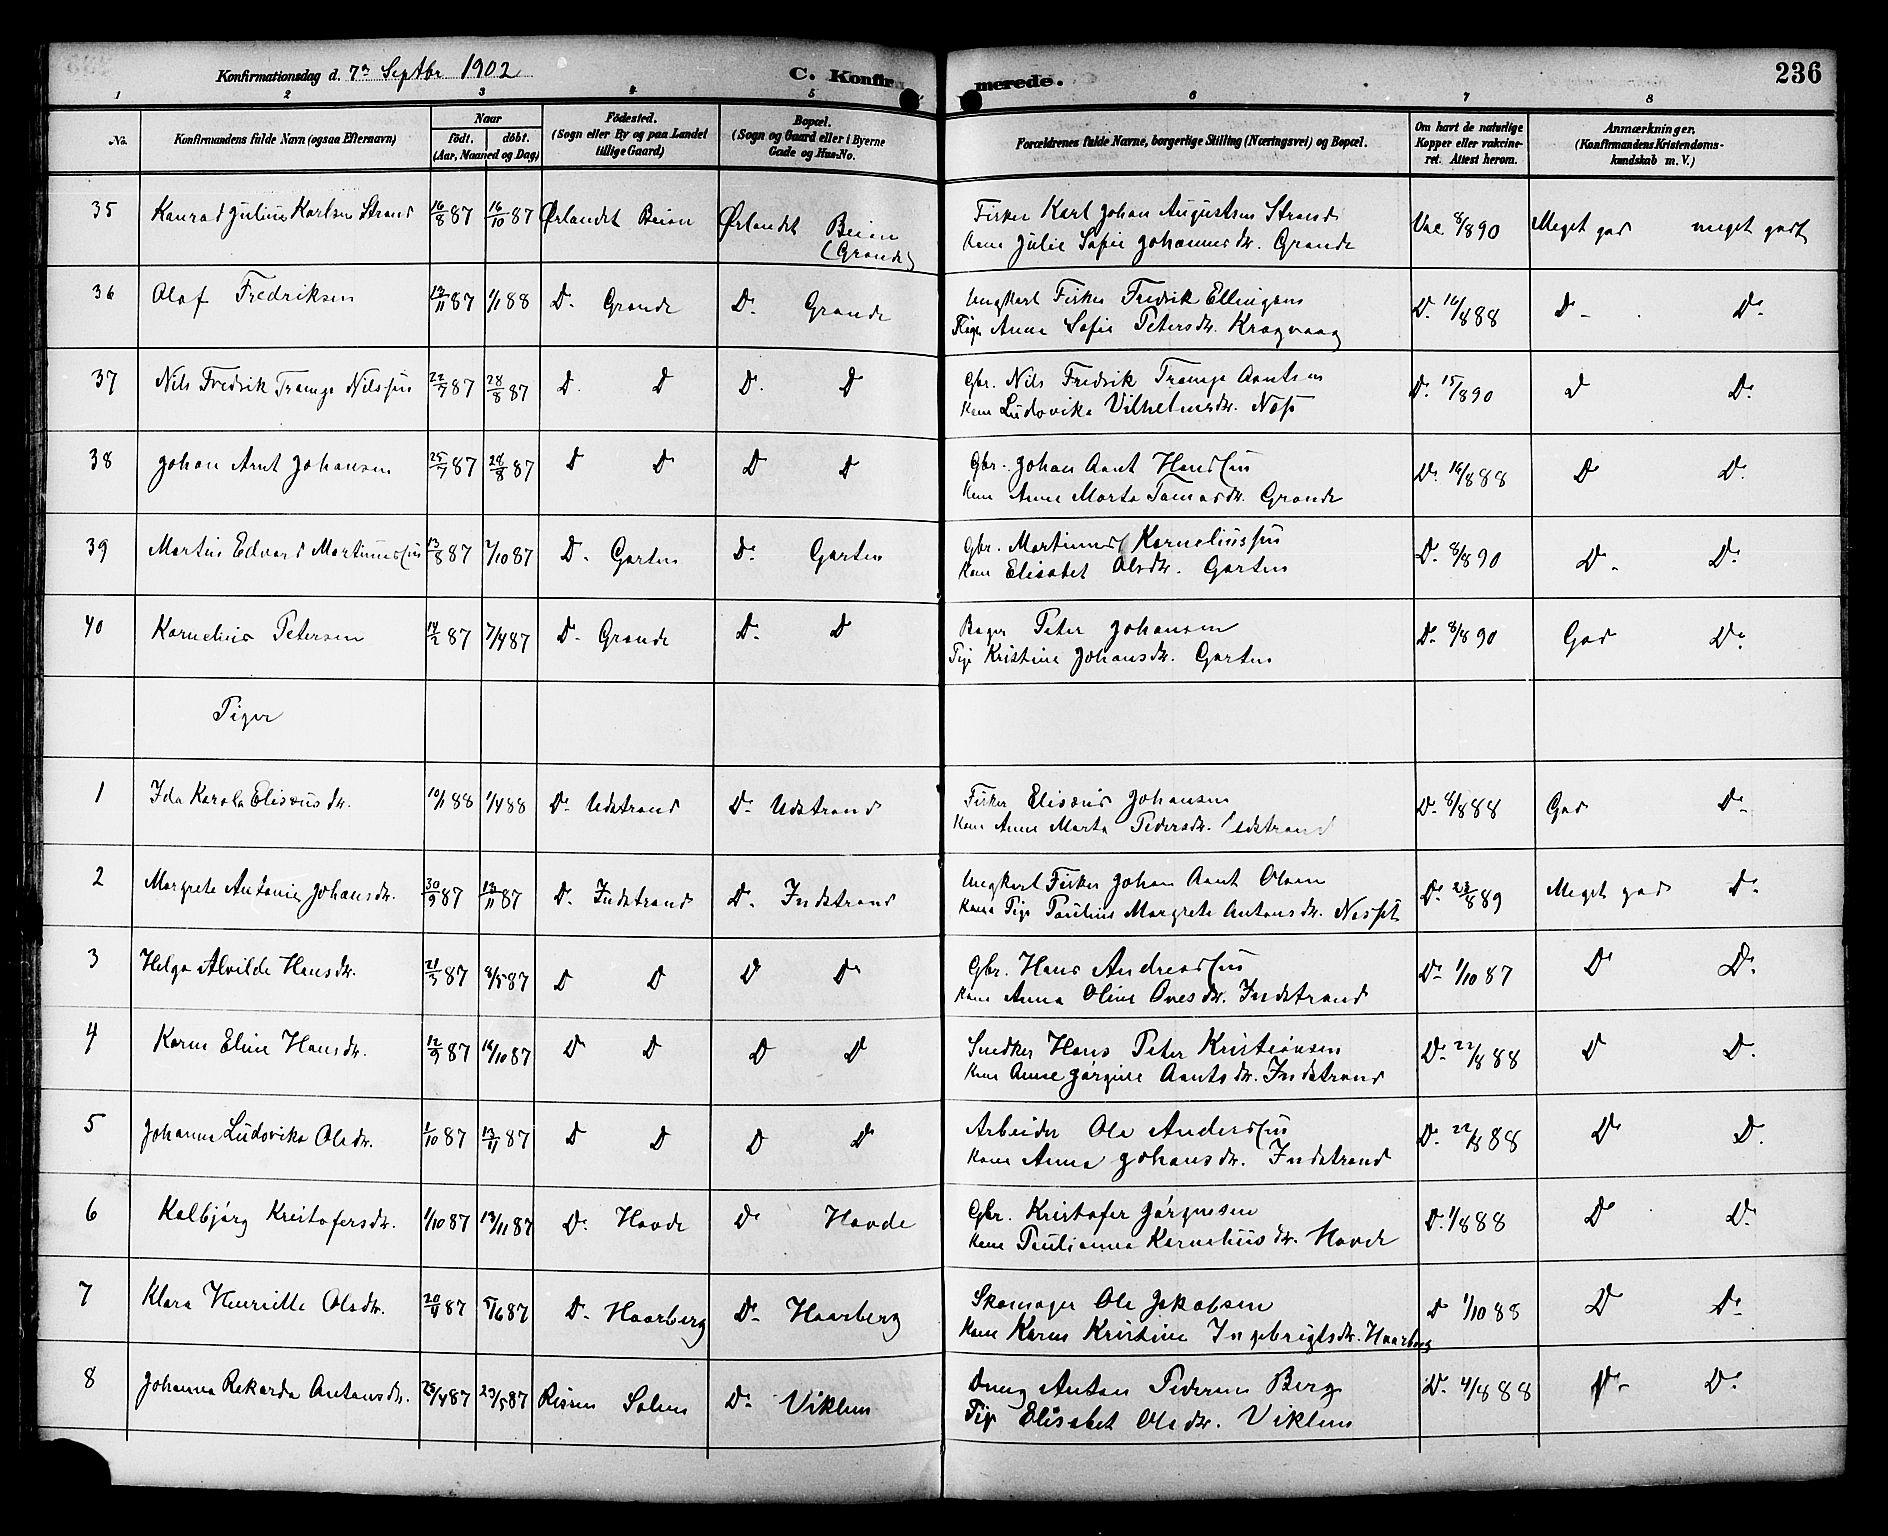 236
Konfirmationsdag d. 7de Septbr 1902
C. Konfirmerede.
1 2 3 4 5 6 7 8
No. Konfirmandens fulde Navn (ogsaa Efternavn) Naar födt. döbt. (Aar, Maaned og Dag) Födested. (Sogn eller By og paa Landet tillige Gaard) Bopæl. (Sogn og Gaard eller i Byerne Gade og Hus-No. Forældrenes fulde Navne, borgerlige Stilling (Næringsvei) og Bopæl. Om havt de naturlige Kopper eller vakcineret. Attest herom. Anmærkninger. (Konfirmandens Kristendomskundskab m. V.)
35 Konrad Julius Karlsen Strand 16/8 87 16/10 87 Ørlandet Beian Ørlandet Beian (Grande) Fisker Karl Johan Augustsen Strand
Kone Julie Sofie Johannesdr. Grande Vac 8/8 90 Meget god meget godt
36 Olaf Fredriksen 12/11 87 1/1 88 Do Grande Do Grande Ungkarl Fisker Fredrik Ellingsen
Pige Anne Sofie Petersdr. Kragvaag Do 16/8 88 Do Do
37 Nils Fredrik Trampe Nilssen 22/7 87 28/8 87 Do Do Do Do Gbr. Nils Fredrik Trampe Arntsen
Kone Ludovika Vilhelmsdr. Næs Do 15/8 90 Do Do
38 Johan Arnt Johansen 25/7 87 28/8 87 Do Do Do Do Gbr. Johan Arnt Hanssen
Kone Anne Marta Tomasdr. Grande Do 16/8 88 Do Do
39 Martin Edvard Martinussen 13/8 87 2/10 87 Do Garten Do Garten Gbr. Martinus Korneliussen
Kone Elisabet Olsdr. Garten Do 8/8 90 Do Do
40 Kornelius Petersen 14/2 87 7/4 87 Do Grande Do Do Bager Peter Johansen
Pige Kristine Johansdr. Garten Do 8/8 90 God Do
Piger
1 Ida Karola Elisæusdr. 10/1 88 1/4 88 Do Udstrand Do Udstrand Fisker Elisæus Johansen
Kone Anne Marta Pedersdr. Udstrand Do 8/8 88 God Do
2 Margrete Antonie Johansdr. 30/9 87 13/11 87 Do Indstrand Do Indstrand Ungkarl Fisker Johan Arnt Olsen
Pige Pauline Margrete Antonsdr. Nesset Do 23/8 89 Meget god Do
3 Helga Alvilde Hansdr. 21/3 87 8/5 87 Do Do Do Do Gbr. Hans Andreassen
Kone Anna Oline Ovesdr. Indstrand Do 1/10 87 Do Do
4 Karen Eline Hansdr. 12/9 87 16/10 87 Do Do Do Do Snedker Hans Peter Kristiansen
Kone Anne Jørgine Arntsdr. Indstrand Do 22/8 88 Do Do
5 Johanne Ludovika Olsdr. 1/10 87 13/11 87 Do Do Do Do Arbeider Ole Anderssen
Kone Anna Johansdr. Indstrand Do 22/8 88 Do Do
6 Kolbjørg Kristofersdr. 1/10 87 13/11 87 Do Hovde Do Hovde Gbr. Kristofer Jørgensen
Kone Paulianna Korneliusdr. Hovde Do 1/8 88 Do Do
7 Klara Henriette Olsdr. 20/4 87 5/6 87 Do Haarberg Do Haarberg Skomager Ole Jakobsen
Kone Karen Kristine Ingebrigtsdr. Haarberg Do 1/10 88 Do Do
8 Johanna Rekarda Antonsdr. 25/4 87 23/5 87 Rissen Solem Do Viklem Dreng Anton Pedersen Berg
Pige Elisabet Olsdr. Viklem Do 4/8 88 Do Do